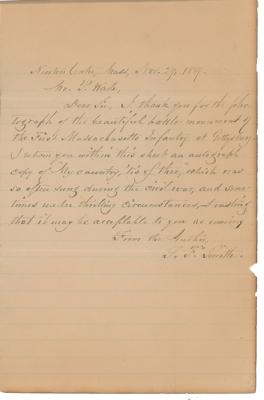 Newton Centre, Mass, Nov. 29, 1889.
Mr. P. Wade,
Dear Sir, I thank you for the pho-
tograph of the beautiful battle-monument of
the First Massachusetts Infantry at Gettysburg.
I return you within this sheet an autograph
copy of "My country, 'tis of thee," which was
so often sung during the civil war, and some-
times under thrilling circumstances, trusting
that it may be acceptable to you as coming
From the Author,
S. F. Smith.